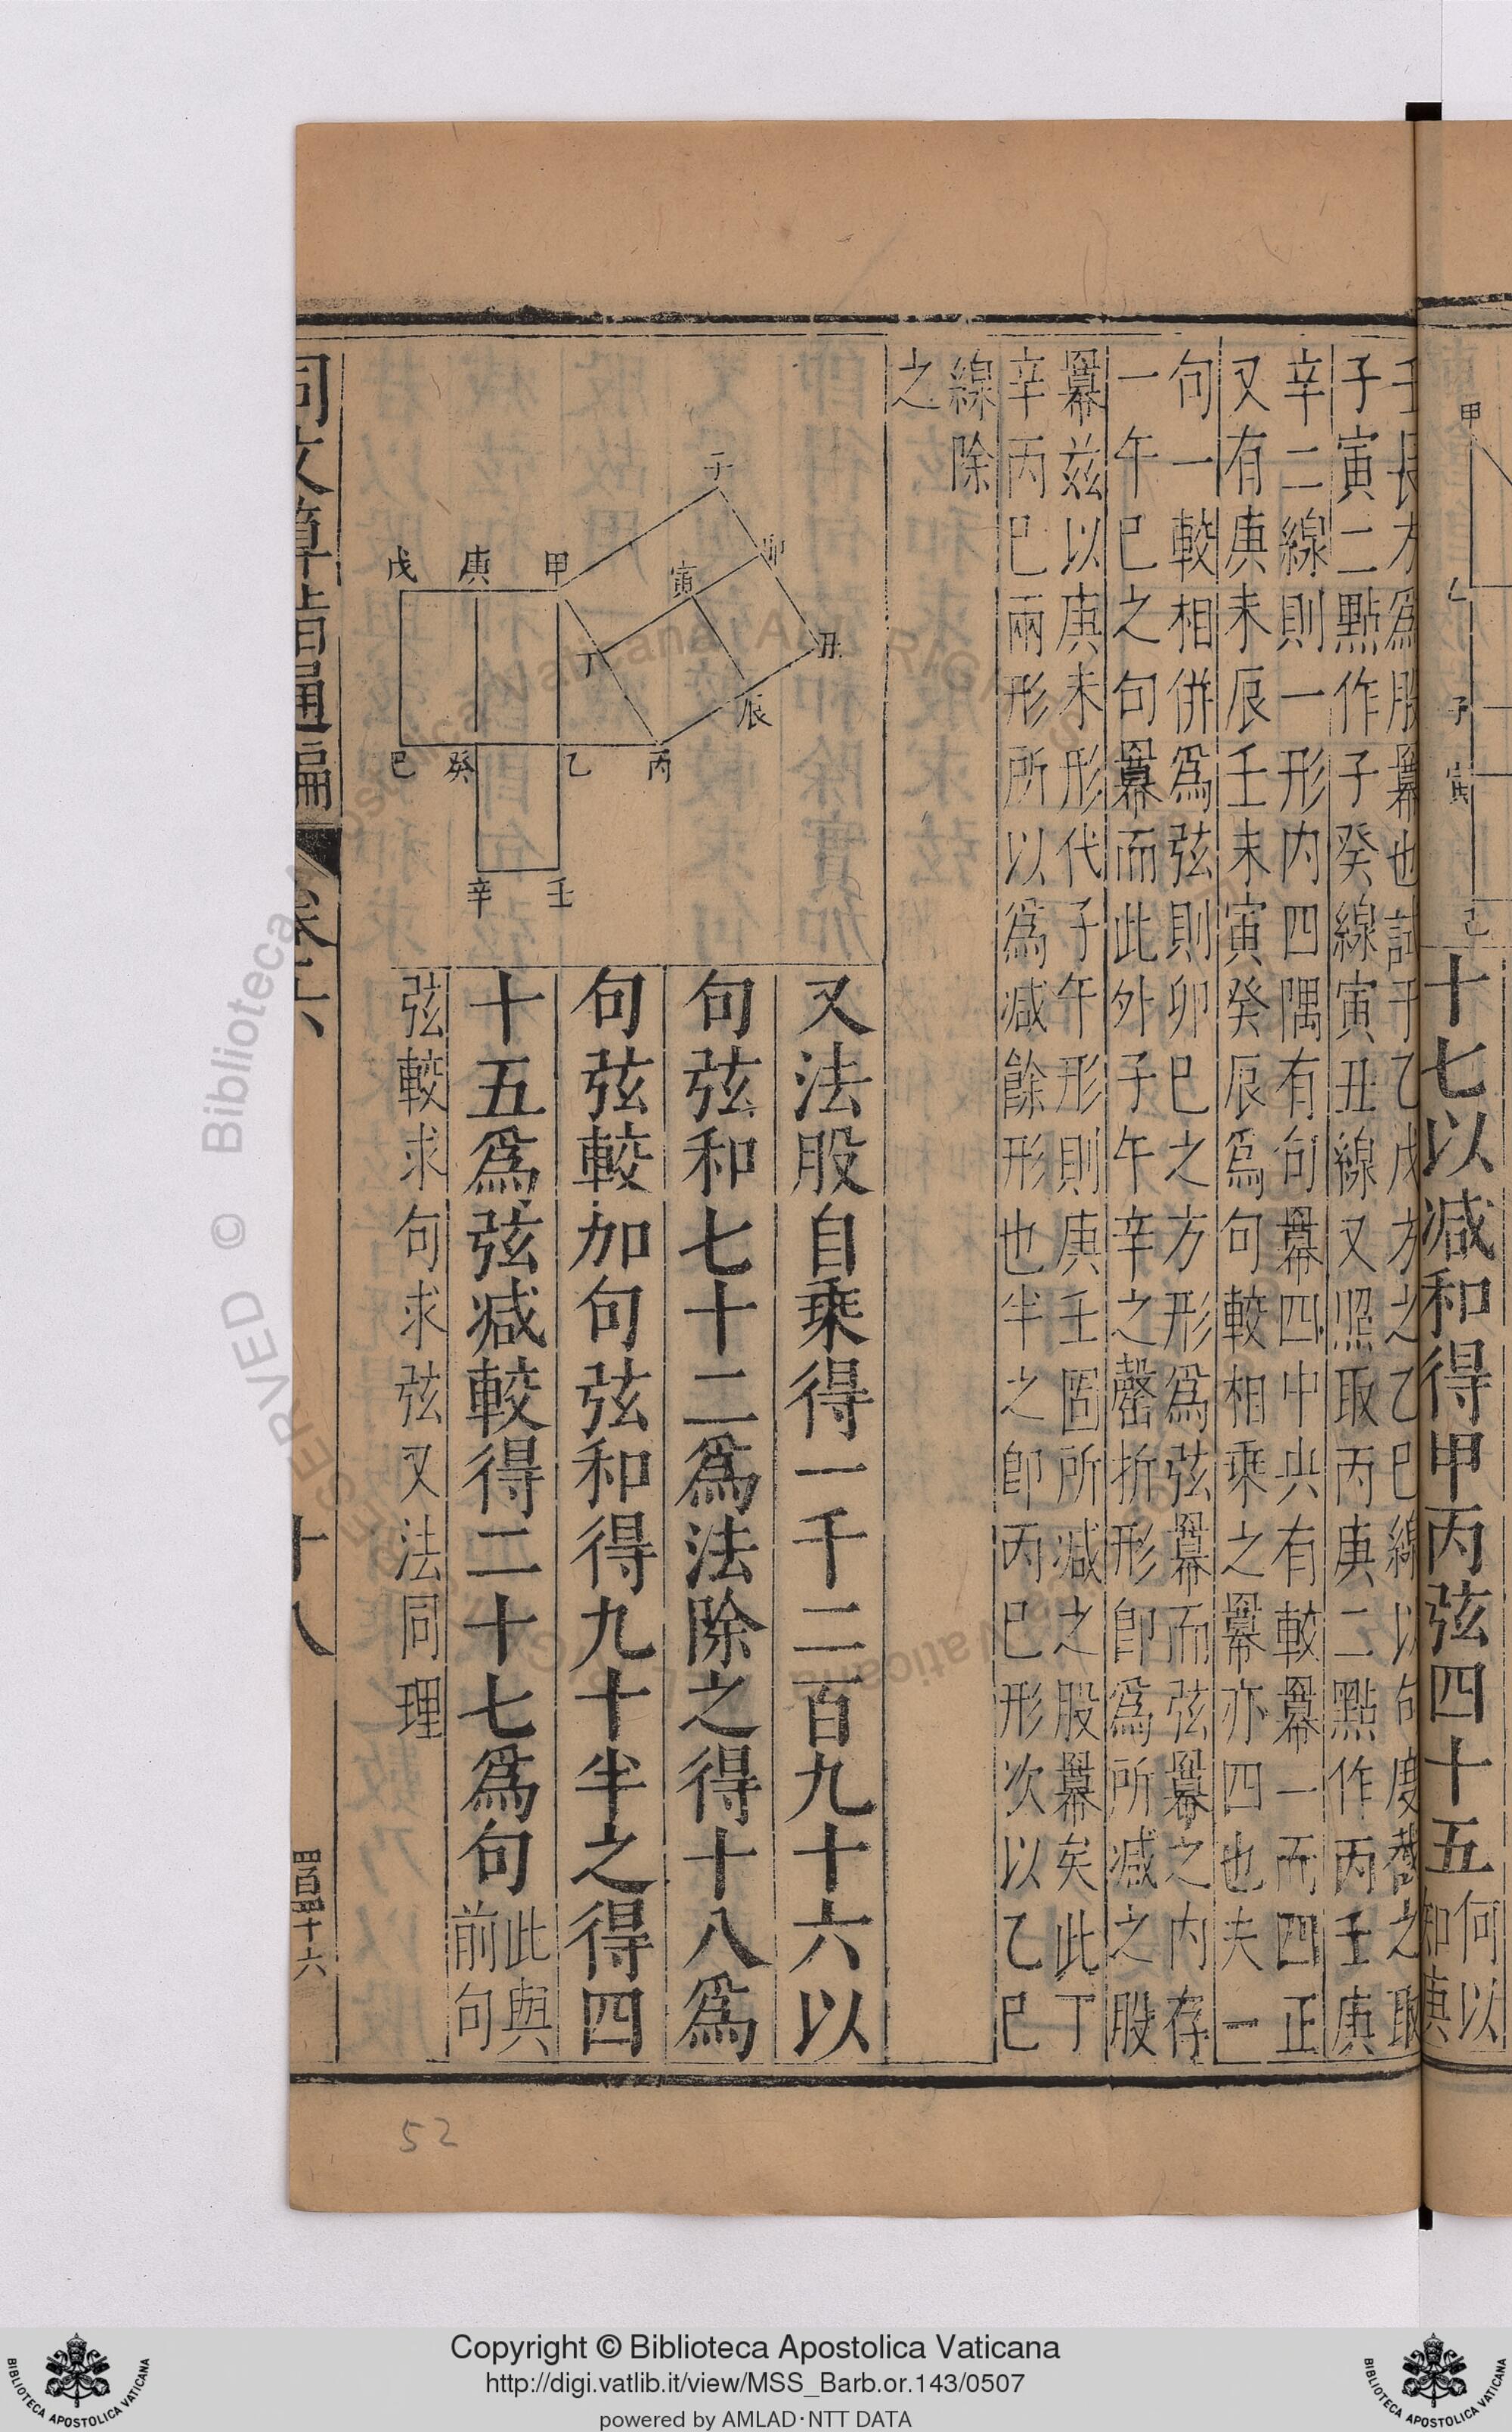 十七以減和得甲丙弦四十五何以
和庚
壬長方爲股羃也試于乙戊方之乙巳線以句度截之取
子寅二點作子癸線寅丑線又照取丙庚二點作丙壬庚
辛二線則一形内四隅有句羃四中央有較羃一而四正
又有庚未辰壬未寅癸辰爲句較相乘之羃亦四也夫一
句一較相併爲弦則卯巳之方形爲弦羃而弦羃之内存
一午巳之句羃而此外子午辛之罄折形卽爲所減之股
羃茲以庚未形代子午形則庚壬固所減之股羃矣此丁
辛丙巳兩形所以爲減餘形也半之卽丙巳形次以乙巳
線除
之
又法股自乘得一千二百九十六以
句弦和七十二爲法除之得十八爲
句弦較加句弦和得九十半之得四
十五爲弦減較得二十七爲句此與
前句
弦較求句求弦又法同理
子
卯
寅
丑
丁
辰
戊 庚 甲
巳 癸 乙 丙
辛 壬
甲
子
寅
己
同文算指通編
卷六
十八
四百四十六
52
© Biblioteca Apostolica Vaticana
Copyright © Biblioteca Apostolica Vaticana
http://digi.vatlib.it/view/MSS_Barb.or.143/0507
powered by AMLAD·NTT DATA
BIBLIOTECA APOSTOLICA VATICANA
BIBLIOTECA APOSTOLICA VATICANA